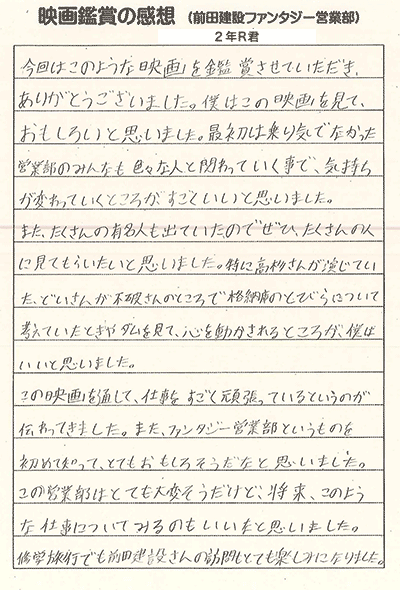 映画鑑賞の感想 (前田建設ファンタジー営業部)
2年R君
今回はこのような映画を鑑賞させていただき、
ありがとうございました。僕はこの映画を見て、
おもしろいと思いました。最初は乗り気でなかった
営業部のみんなも色々な人と関わっていく事で、気持ち
が変わっていくところがすごくいいと思いました。
また、たくさんの有名人も出ていたのでぜひ、たくさんの人
に見てもらいたいと思いました。特に高杉さんが演じてい
た、どいさんが不破さんのところで格納庫のとびらについて
考えていたときやダムを見て、心を動かされるところが、僕は
いいと思いました。
この映画を通して、仕事をすごく頑張っているというのが
伝わってきました。また、ファンタジー営業部というものを
初めて知って、とてもおもしろそうだなと思いました。
この営業部はとても大変そうだけど、将来、このよう
な仕事についてみるのもいいなと思いました。
修学旅行でも前田建設さんの訪問もとても楽しみになりました。